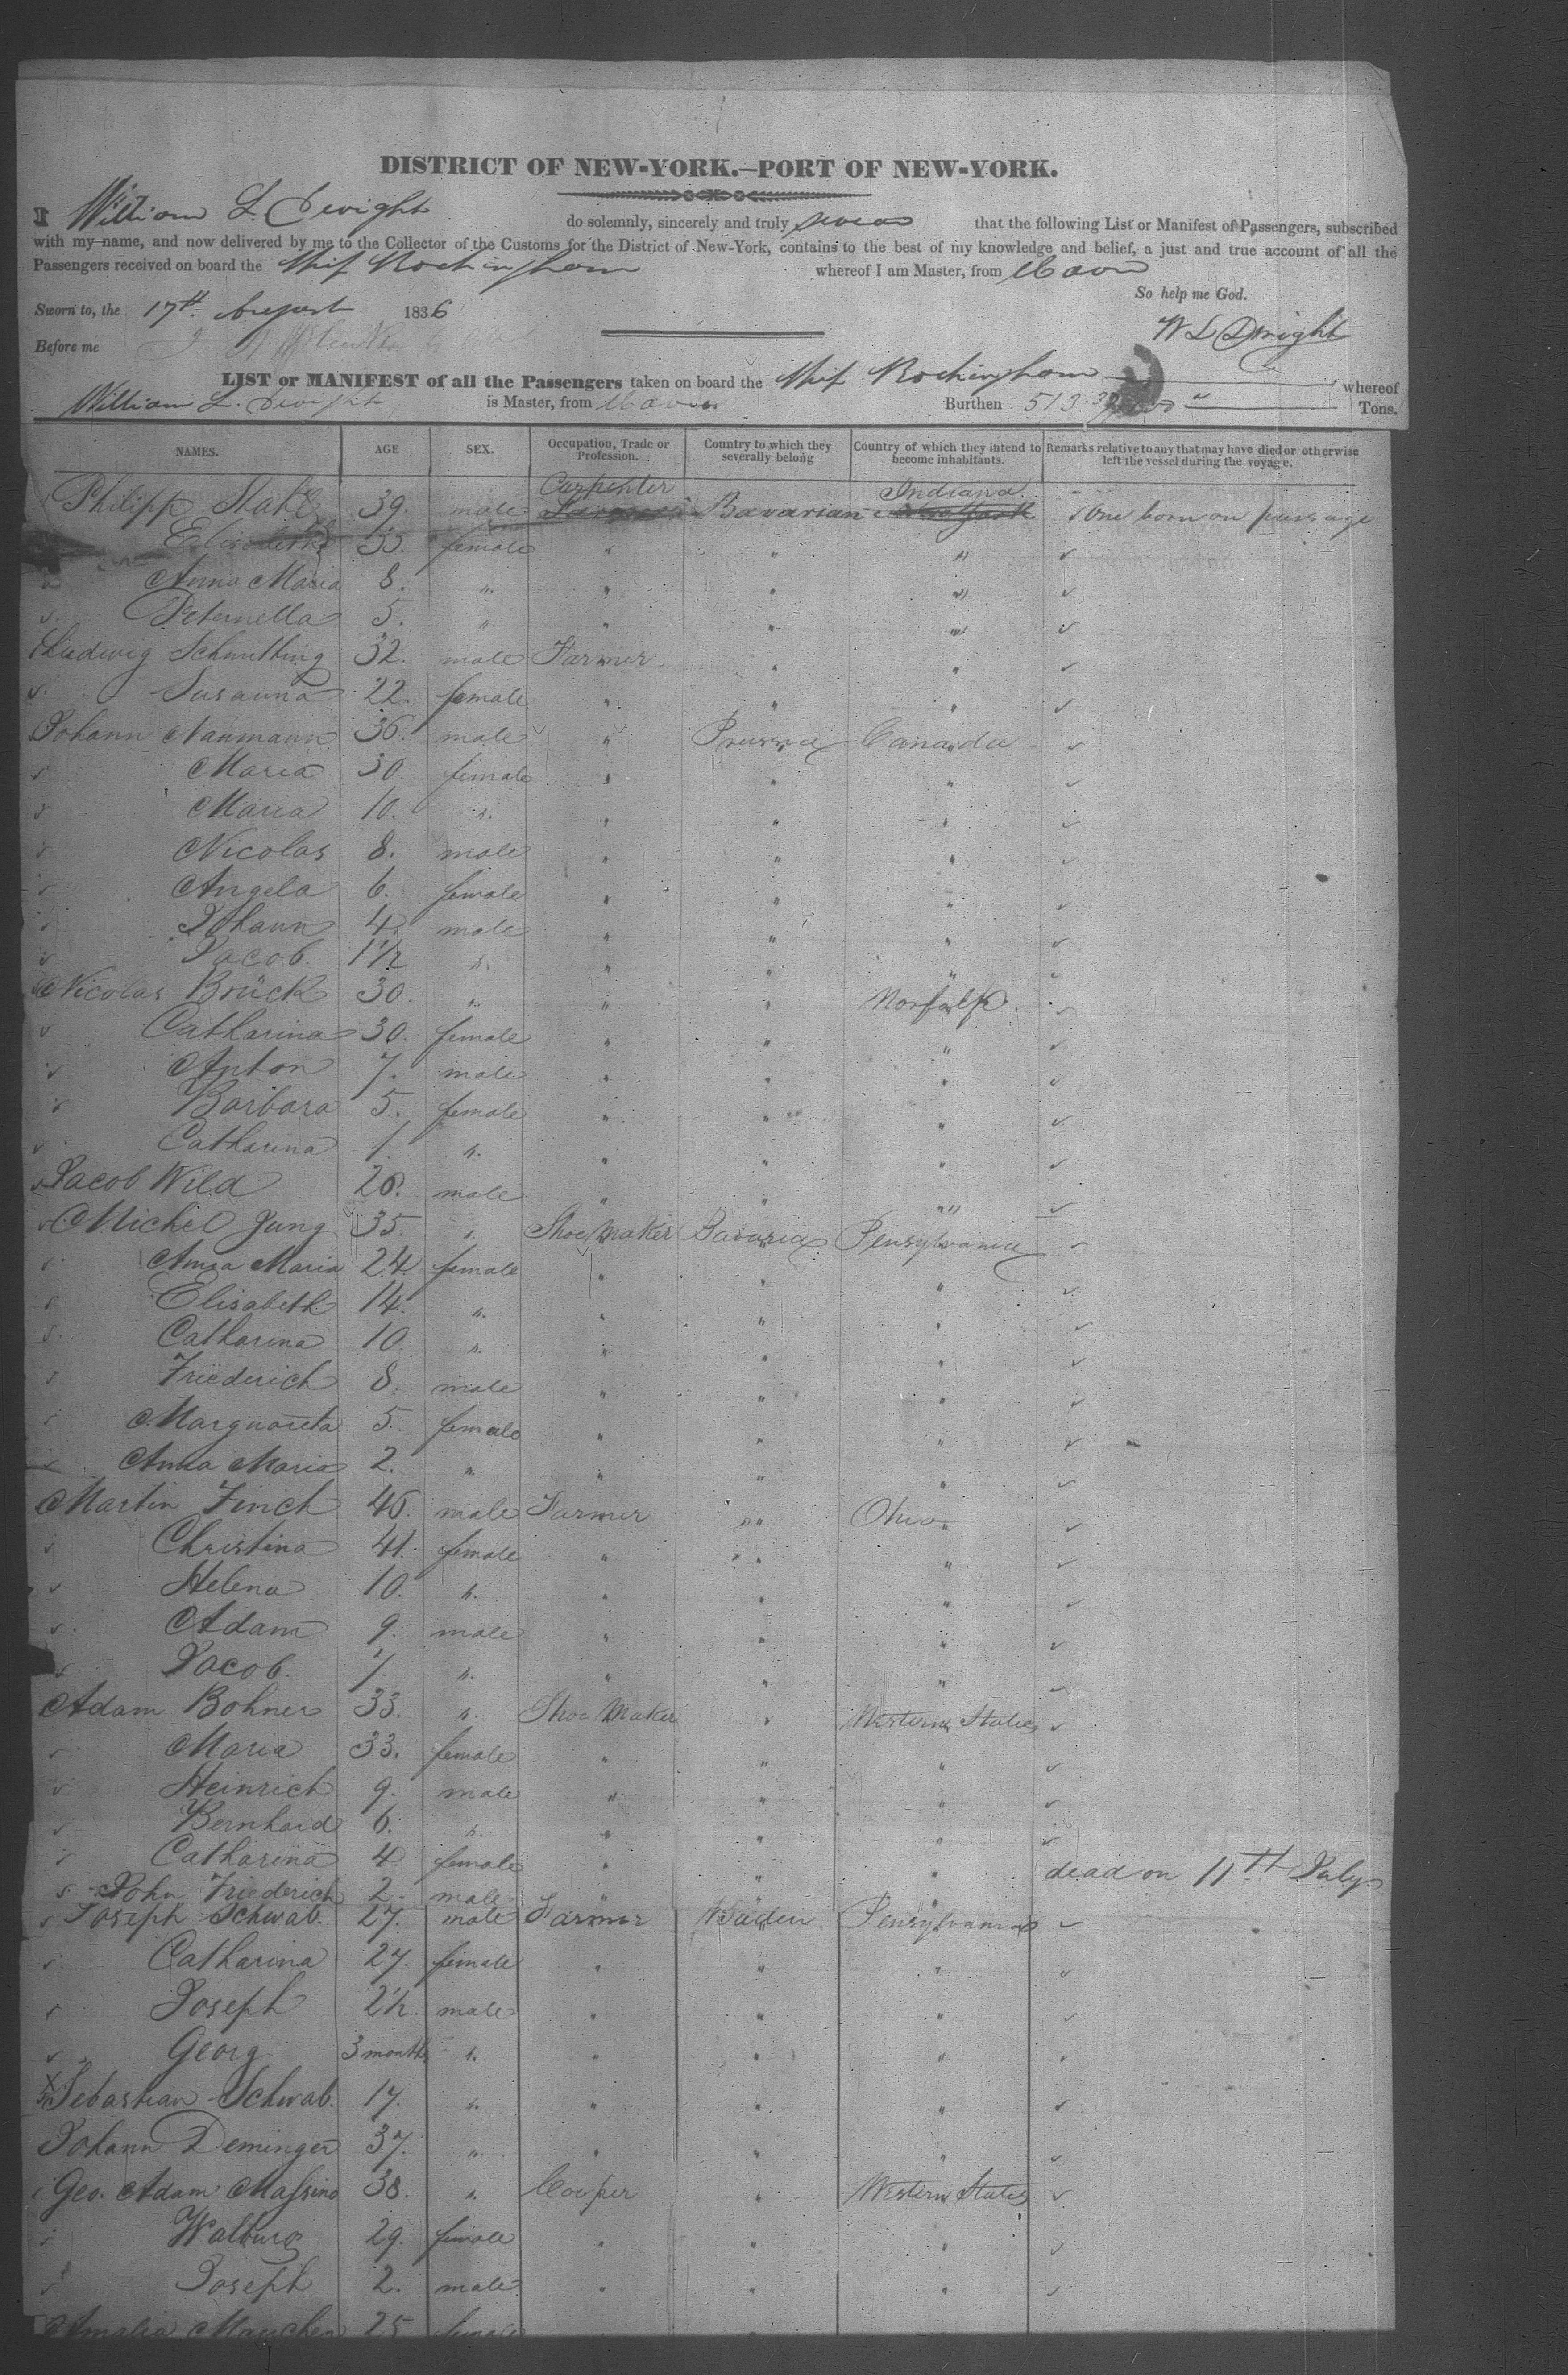 DISTRICT OF NEW-YORK.—PORT OF NEW-YORK.
I William L. Dwight do solemnly, sincerely and truly swear that the following List or Manifest of Passengers, subscribed
with my name, and now delivered by me to the Collector of the Customs for the District of New-York, contains to the best of my knowledge and belief, a just and true account of all the
Passengers received on board the Ship Rockingham whereof I am Master, from Havre
So help me God.
Sworn to, the 17th August 1836
W L Dwight
Before me
LIST or MANIFEST of all the Passengers taken on board the Ship Rockingham whereof
William L. Dwight is Master, from Havre Burthen 513 Tons.
NAMES. AGE SEX. Occupation, Trade or Profession. Country to which they severally belong Country of which they intend to become inhabitants. Remarks relative to any that may have died or otherwise left the vessel during the voyage.
Carpenter Indiana
Philipp 39. male Bavarian One born on passage
Elisabeth female " " "
Anna Maria 8. " " " "
Peternella 5. " " " "
Ludwig 32. male Farmer " "
Susanna 22. female " " "
Johann Naumann 36. male " Prussia Canada
Maria 30 female " " "
Maria 10. " " " "
Nicolas 8. male " " "
Angela 6. female " " "
Johann 4. male " " "
Jacob. 1 1/2 " " " "
Nicolas Brück 30. " " " Norfolk
Catharina 30. female " " "
Anton 7. male " " "
Barbara 5. female " " "
Catharina 1. " " " "
Jacob Wild 26. male " " "
Michel Jung 35 " Shoe Maker Bavaria Pensylvania
Anna Maria 24 female " " "
Elisabeth 14. " " " "
Catharina 10. " " " "
Friederich 8. male " " "
Marguareta 5. female " " "
Anna Maria 2. " " " "
Martin Finch 46. male Farmer " Ohio
Christina 41. female " " "
Helena 10. " " " "
Adam 9. male " " "
Jacob. 7. " " " "
Adam Bohner 33. " Shoe Maker " Western States
Maria 33. female " " "
Heinrich 9. male " " "
Bernhard 6. " " " "
Catharina 4 female " " " dead on 11th July
John Friederich 2. male " " "
Joseph Schwab. 27. male Farmer Baden Pensylvania
Catharina 27. female " " "
Joseph 2 1/2. male " " "
Georg 3 months " " " "
Sebastian Schwab. 17. " " " "
Johann Deminger 37. " " " "
Geo. Adam Massino 38. " Cooper " Western States
Walburg 29. female " " "
Joseph 2. male " " "
Amalia 25 female